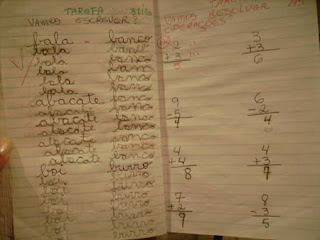 TAREFA
VAMOS ESCREVER?
bala banco
bala banco
bala banco
bala banco
bala banco
bala banco
abacate banco
abacate banco
abacate banco
abacate banco
abacate banco
abacate banco
abacate banco
boi burro
boi burro
boi burro
boi burro
boi burro
boi burro
VAMOS RESOLVER
2
+3
5
3
+3
6
9
-5
4
6
-2
4
4
+4
8
4
+3
7
7
+2
9
8
-3
5